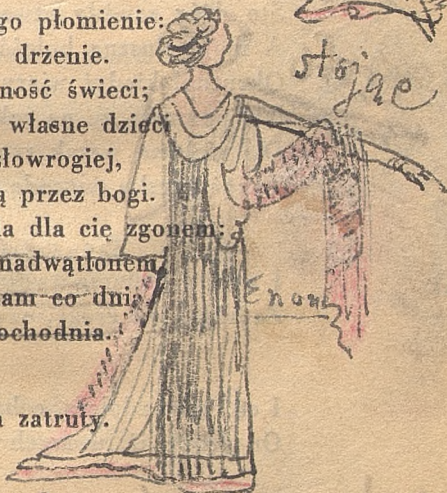 go płomienie:
drżenie.
stojąc
ność świeci;
własne dzieci
złowrogiej,
ą przez bogi.
a dla cię zgonem:
nadwątlonem,
Enon
am co dni,
ochodnia.
a zatruty.